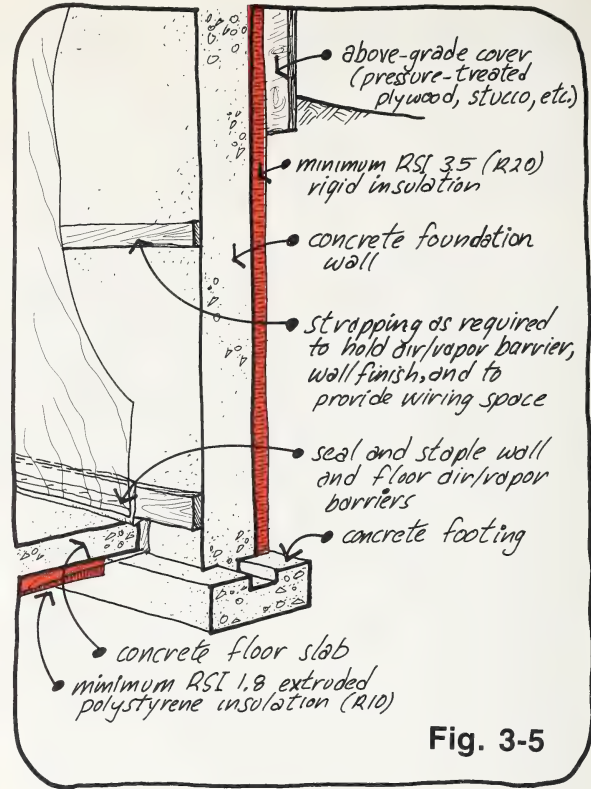 above-grade cover
(pressure-treated
plywood, stucco, etc.)
minimum RSI 3.5 (R20)
rigid insulation
concrete foundation
wall
strapping as required
to hold air/vapor barrier,
wall finish, and to
provide wiring space
seal and staple wall
and floor air/vapor
barriers
concrete footing
concrete floor slab
minimum RSI 1.8 extruded
polystyrene insulation (R10)
Fig. 3-5